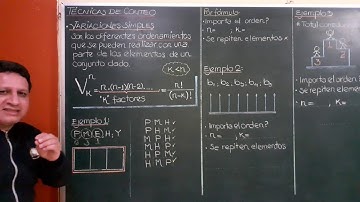 TÉCNICAS DE CONTEO
• VARIACIONES SIMPLES
Son los diferentes ordenamientos
que se pueden realizar con una
parte de los elementos de un
conjunto dado.
k < n
V n k = n.(n-1)(n-2)..... = n! / (n-k)!
"K" factores
Ejemplo 1:
{P, M, E}, H, Y
P M H
P H M
M P H
M H P
H P M
H M P
Por fórmula:
• Importa el orden?
n= , k=
• Se repiten elementos x
Ejemplo 2:
b1, b2, b3, b4, b5
• Importa el orden?
n= , k=
• Se repiten elementos
Ejemplo 3:
• Total
3 2 1
• Importa el
• Se repiten
• n= , k=